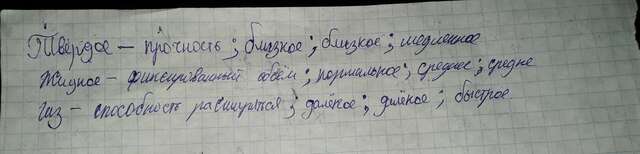 Твёрдое - прочность; близкое; близкое; медленное
Жидкое - фиксированный объём; нормальное; среднее; средне
Газ - способность расшириться; далёкое; далёкое; быстрое.